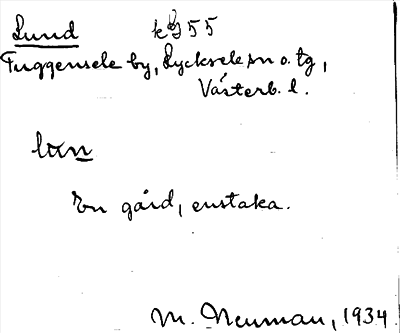 Lund
Tuggensele by, Lycksele sn o. tg,
Västerb. l.
En gård, enstaka.
M. Neuman, 1934